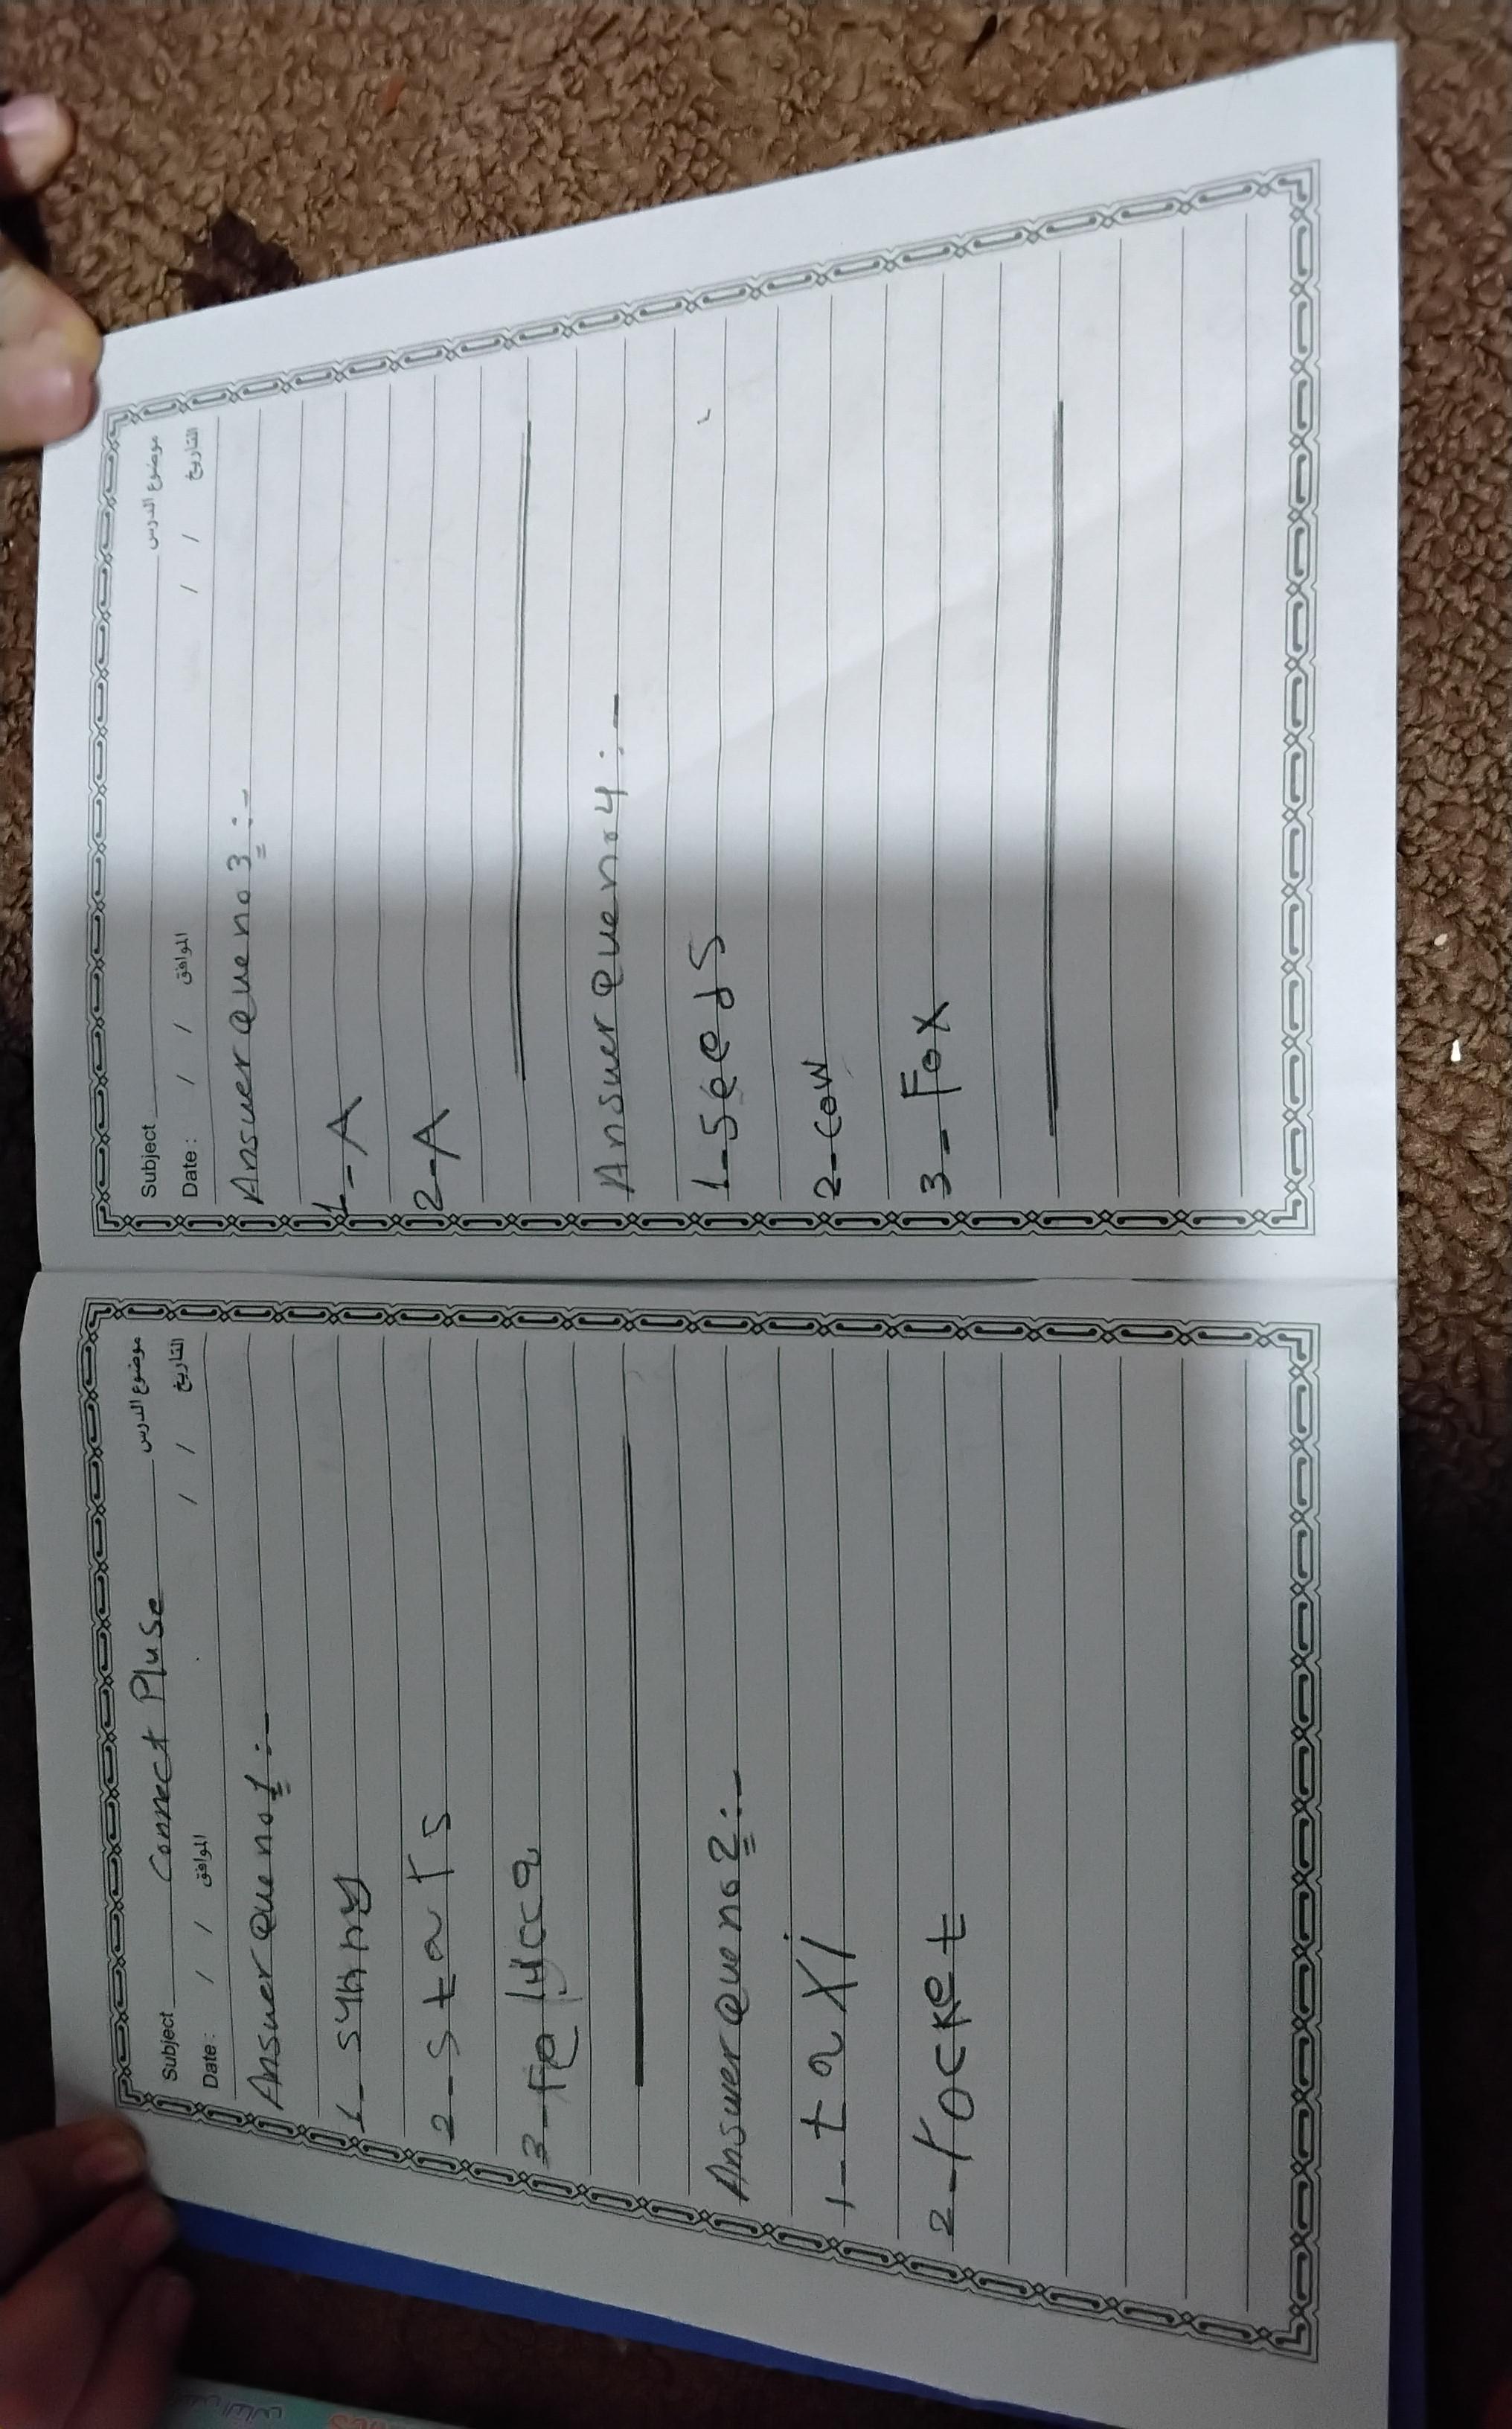 Subject Connect Pluse موضوع الدرس
Date : / / الموافق / / التاريخ
Answer Que no 1 :-
1- sunny
2- stars
3-
Answer Que no 2 :-
1- taxi
2- rocket
Subject موضوع الدرس
Date : / / الموافق / / التاريخ
Answer Que no 3 :-
1- A
2- A
Answer Que no 4 :-
1- Seeds
2- cow
3- Fox